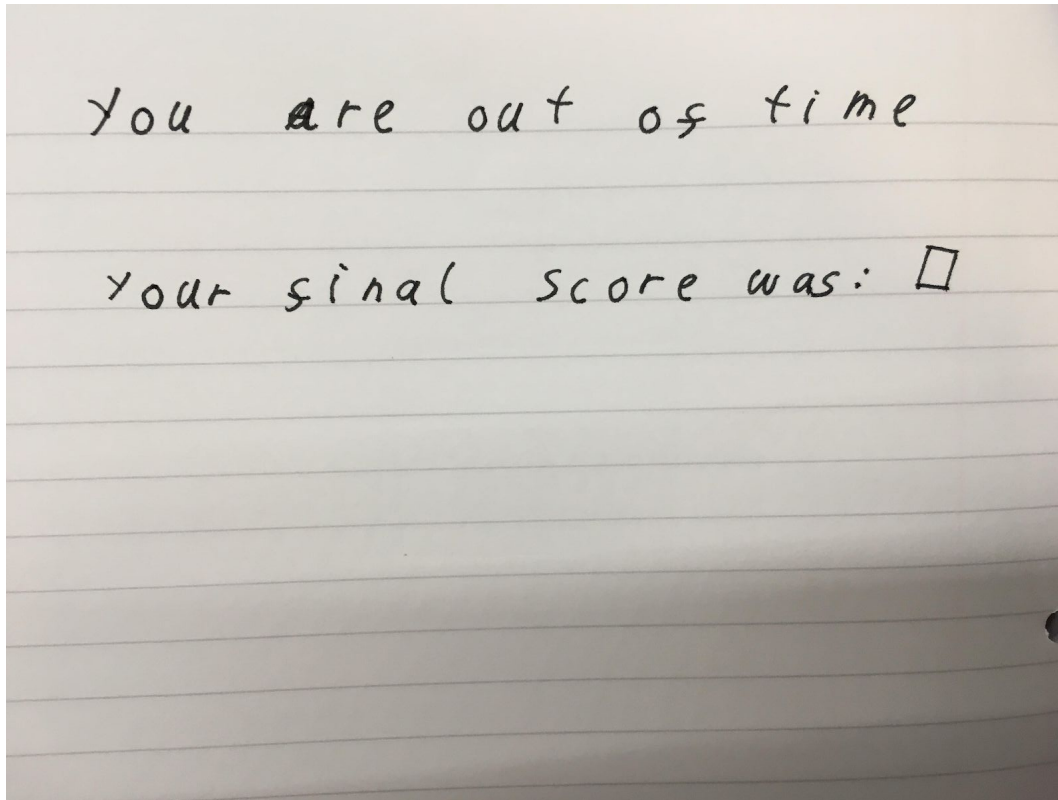 You are out of time
Your final score was: □